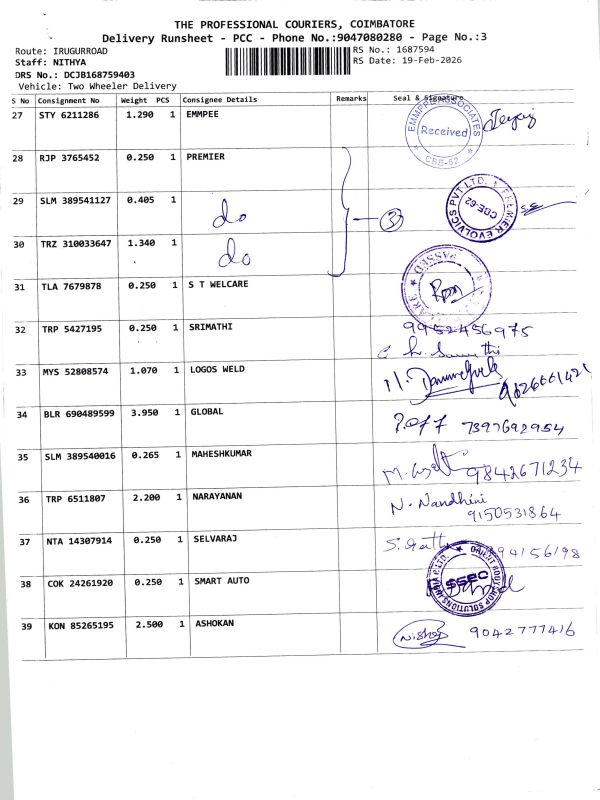 THE PROFESSIONAL COURIERS, COIMBATORE
Delivery Runsheet - PCC - Phone No.:9047080280 - Page No.:3
Route: IRUGURROAD RS No.: 1687594
Staff: NITHYA RS Date: 19-Feb-2026
DRS No.: DCJB168759403
Vehicle: Two Wheeler Delivery
S No Consignment No Weight PCS Consignee Details Remarks Seal & Signature
27 STY 6211286 1.290 1 EMMPEE
EMMPEE ASSOCIATES Received CBE-62
28 RJP 3765452 0.250 1 PREMIER
29 SLM 389541127 0.405 1 do
3
PREMIER EVOLVICS PVT LTD. CBE-62
30 TRZ 310033647 1.340 1 do
31 TLA 7679878 0.250 1 S T WELCARE
PASSED
32 TRP 5427195 0.250 1 SRIMATHI 9952456975
33 MYS 52808574 1.070 1 LOGOS WELD
34 BLR 690489599 3.950 1 GLOBAL 7397692954
35 SLM 389540016 0.265 1 MAHESHKUMAR 9842671234
36 TRP 6511807 2.200 1 NARAYANAN N. Nandhini
9150531864
37 NTA 14307914 0.250 1 SELVARAJ
38 COK 24261920 0.250 1 SMART AUTO
SSEC ORIENT BODYSHOP SOLUTIONS INDIA P LTD
39 KON 85265195 2.500 1 ASHOKAN 9042777416